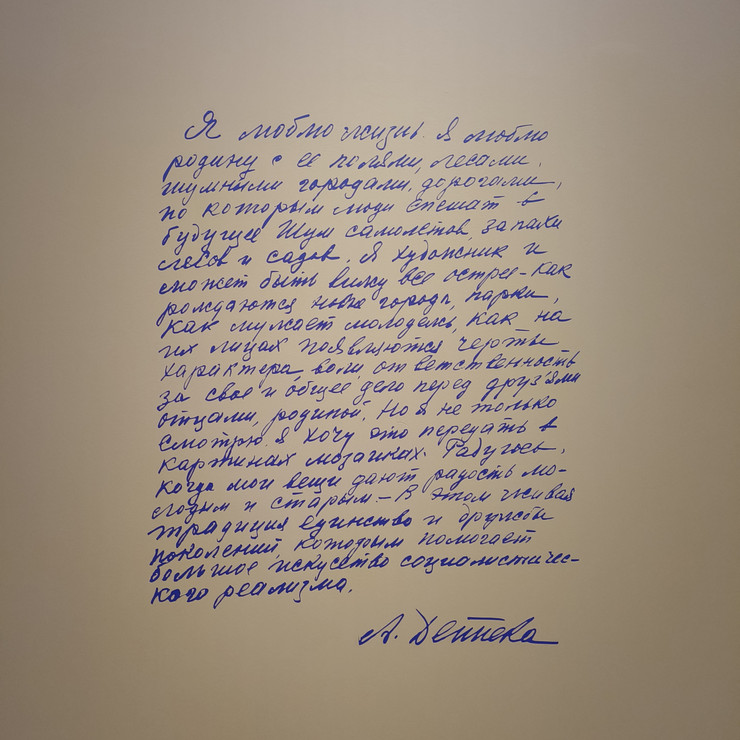 Я люблю жизнь. Я люблю
родину с ее полями, лесами,
шумными городами, дорогами,
по которым люди спешат в
будущее Шум самолетов, запахи
лесов и садов. Я художник и
может быть вижу все острее – как
рождаются новые города, парки,
как мужает молодежь, как на
их лицах появляются черты
характера, воли, ответственность
за свое и общее дело перед друзьями
отцами, родиной. Но я не только
смотрю я хочу это передать в
картинах мозаиках. Радуюсь,
когда мои вещи дают радость мо-
лодым и старым – В этом живая
традиция единство и дружбы
поколений, которым помогает
большое искусство социалистичес-
кого реализма.
А. Дейнека